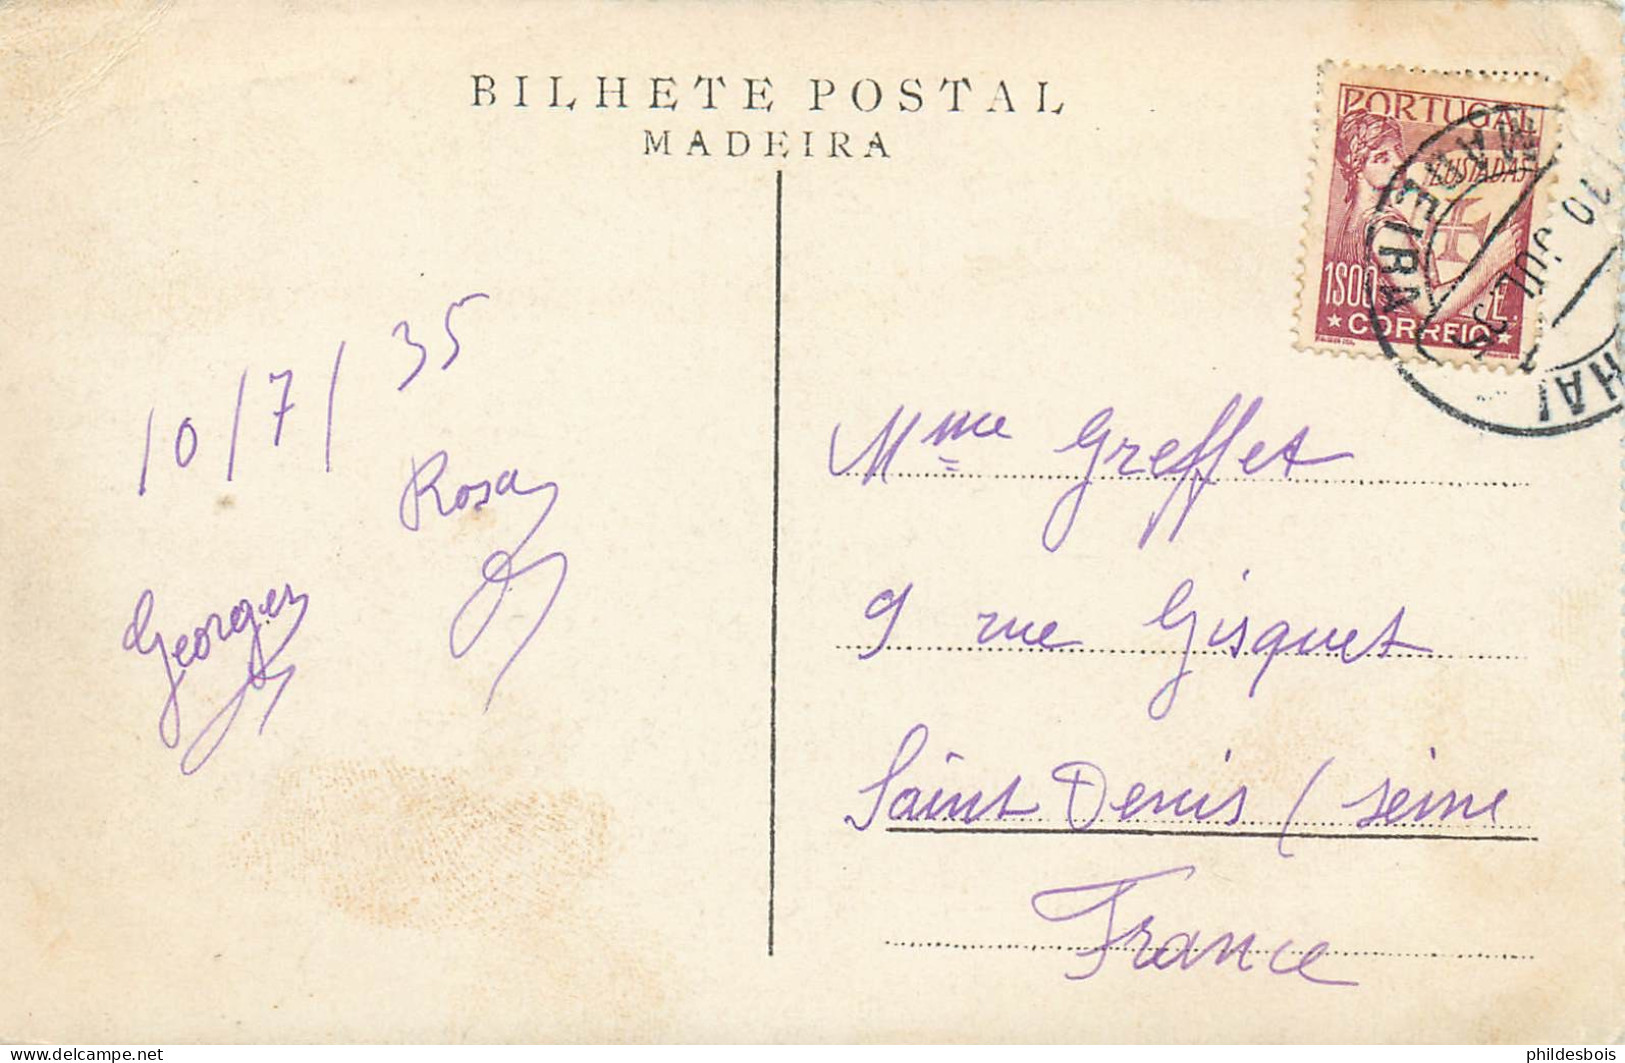 BILHETE POSTAL
MADEIRA
PORTUGAL
LUSIADAS
1$00
CORREIO
MADEIRA
10 JUL 35
10/7/35
Rosa
Georges
Mme Greffet
9 rue Gisquet
Saint Denis (Seine
France
delcampe.net
phildesbois